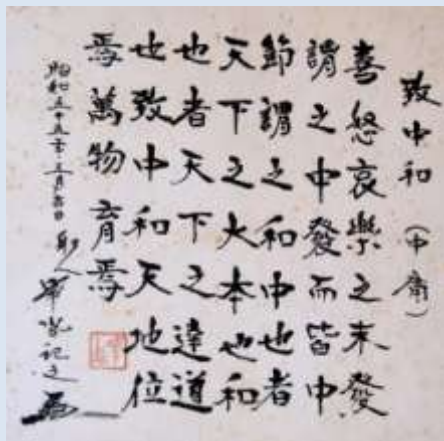 致中和(中庸)
喜怒哀樂之未發
謂之中發而皆中
節謂之和中也者
天下之大本也和
也者天下之達道
也致中和天地位
焉萬物育焉
昭和五十五年
記之